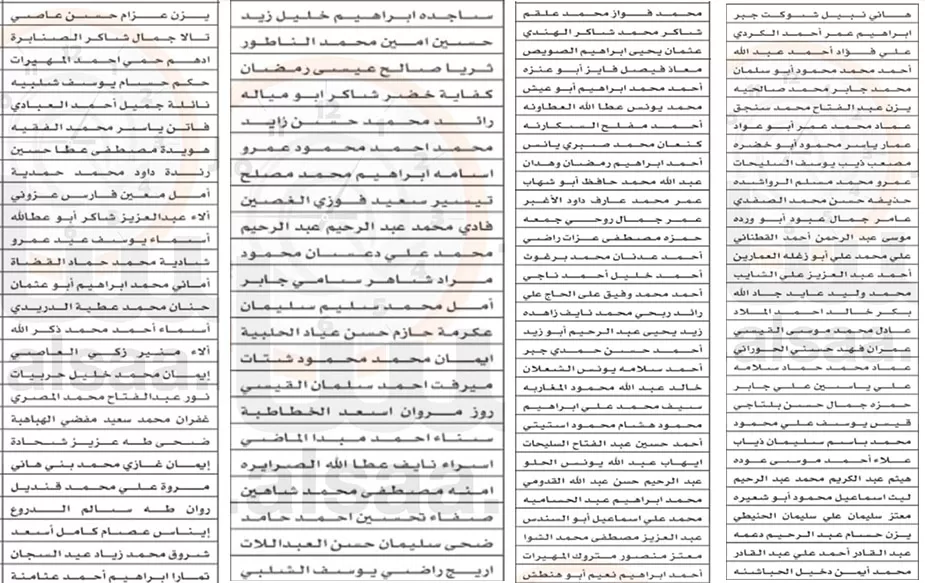 هاني نبيل شوكت جبر
ابراهيم عمر أحمد الكردي
علي فؤاد أحمد عبد الله
أحمد محمد محمود أبو سلمان
محمد جابر محمد صالحيه
يزن عبد الفتاح محمد سنجق
عماد محمد عمر أبو عواد
عمار ياسر محمود أبو خضره
مصعب ذيب يوسف السليحات
عمرو محمد مسلم الرواشده
حذيفه حسن محمد الصفدي
عامر جمال عبود أبو ورده
موسى عبد الرحمن أحمد القطناني
علي محمد علي أبو زغله العمارين
أحمد عبد العزيز علي الشايب
محمد وليد عايد جاد الله
بكر خالد احمد الملاد
عادل محمد موسى القيسي
عمران فهد حسني الحوراني
عماد محمد حماد سلامه
علي ياسين علي جابر
حمزه جمال حسن بلتاجي
قيس يوسف علي محمود
محمد باسم سليمان ذياب
علاء أحمد موسى عوده
هيثم عبد الكريم محمد عبد الرحيم
ليث اسماعيل محمود أبو شعيره
معتز سليمان علي سليمان الحنيطي
يزن حسام عبد الرحيم دعمه
عبد القادر أحمد علي عبد القادر
محمد أيمن دخيل الحباشنه
محمد فواز محمد علقم
شاكر محمد شاكر الهندي
عثمان يحيى ابراهيم الصويص
معاذ فيصل فايز أبو عنزه
أحمد محمد ابراهيم أبو عيش
محمد يونس عطا الله العطاونه
أحمد مفلح السكارنه
كنعان محمد صبري يانس
أحمد ابراهيم رمضان وهدان
عبد الله محمد حافظ أبو شهاب
عمر محمد عارف داود الأغبر
عمر جمال روحي جمعه
حمزه مصطفى عزات راضي
أحمد عدنان محمد برغوث
أحمد خليل أحمد ناجي
أحمد محمد وفيق على الحاج علي
رائد ربحي محمد نايف زاهده
زيد يحيى عبد الرحيم أبو زيد
أحمد حسن حمدي جبر
أحمد سلامه يونس الشعلان
خالد عبد الله محمود المغاربه
سيف محمد علي ابراهيم
محمود هشام محمود استيتي
أحمد حسين عبد الفتاح السليحات
ايهاب عبد الله يونس الحلو
عبد الرحيم حسن عبد الله القدومي
محمد ابراهيم عبد الحساميه
محمد علي اسماعيل أبو السندس
عبد العزيز مصطفى محمد الشوا
معتز منصور متروك المهيرات
أحمد ابراهيم نعيم أبو هنطش
ساجده ابراهيم خليل زيد
حسين امين محمد الناطور
ثريا صالح عيسى رمضان
كفاية خضر شاكر ابو مياله
رائد محمد حسن زايد
محمد احمد محمود عمرو
اسامه ابراهيم محمد مصلح
تيسير سعيد فوزي الغصين
فادي محمد عبد الرحيم عبد الرحيم
محمد علي دعسان محمود
مراد شاهر سامي جابر
أمل محمد سليم سليمان
عكرمة حازم حسن عياد الحلبية
ايمان محمد محمود شتات
ميرفت احمد سلمان القيسي
روز مروان اسعد الخطاطبة
سناء احمد مبدا الماضي
اسراء نايف عطا الله الصرايره
امنه مصطفى محمد شاهين
صفاء تحسين احمد حامد
ضحى سليمان حسن العبداللات
اريج راضي يوسف الشلبي
يزن عزام حسن عاصي
تالا جمال شاكر الصنابرة
ادهم حمي احمد المهيرات
حكم حسام يوسف شلبيه
نائلة جميل أحمد العبادي
فاتن ياسر محمد الفقيه
هويدة مصطفى عطا حسين
رندة داود محمد حمدية
أمل معين فارس عزوني
آلاء عبدالعزيز شاكر أبو عطالله
أسماء يوسف عيد عمرو
شادية محمد حماد القضاة
أماني محمد ابراهيم أبو عثمان
حنان محمد عطية الدريدي
أسماء أحمد محمد ذكر الله
آلاء منير زكي العاصي
إيمان محمد خليل حربيات
نور عبدالفتاح محمد المصري
غفران محمد سعيد مفضي الهباهبة
ضحى طه عزيز شحادة
إيمان غازي محمد بني هاني
مروة علي محمد قنديل
روان طه سالم الدروع
إيناس عصام كامل أسعد
شروق محمد زياد عبد السجان
تمارا ابراهيم أحمد عثامنة